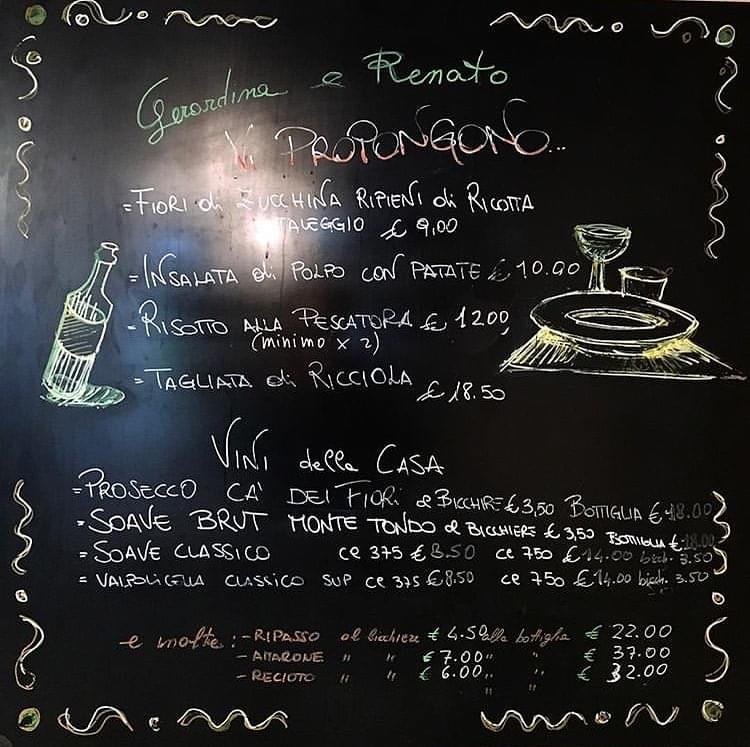 Gerardina e Renato
Vi PROPONGONO...
= FIORI di ZUCCHINA RIPIENI di RICOTTA
TALEGGIO £ 9,00
= INSALATA di POLPO CON PATATE £ 10.00
= RISOTTO ALLA PESCATORA £ 12 00
(minimo x 2)
= TAGLIATA di RICCIOLA £ 18.50
VINI della CASA
= PROSECCO CA' DEI FIORI al BICCHIRE £ 3,50 BOTTIGLIA € 18.00
= SOAVE BRUT MONTE TONDO al BICCHIERE £ 3,50 BOTTIGLIA £ 18.00
= SOAVE CLASSICO CC 375 € 8.50 CC 750 £ 14.00 bicch. 3.50
= VALPOLICELLA CLASSICO SUP CC 375 £ 8,50 CC 750 £ 14.00 bicch. 3.50
e inoltre: - RIPASSO al bicchiere € 4.50 alla bottiglia € 22.00
- AMARONE " " € 7.00 " " € 37.00
- RECIOTO " " € 6.00 " " € 32.00
" "